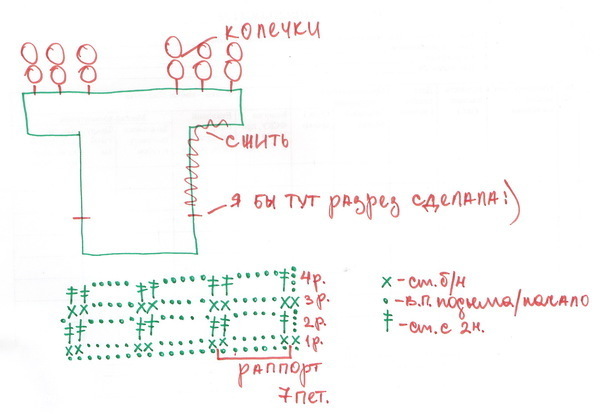 КОЛЕЧКИ
СШИТЬ
Я БЫ ТУТ РАЗРЕЗ СДЕЛАЛА:)
4р.
3р.
2р.
1р.
РАППОРТ
7 ПЕТ.
х - ст. б/н
• - в.п. подъема/начало
ǂ - ст. с 2н.